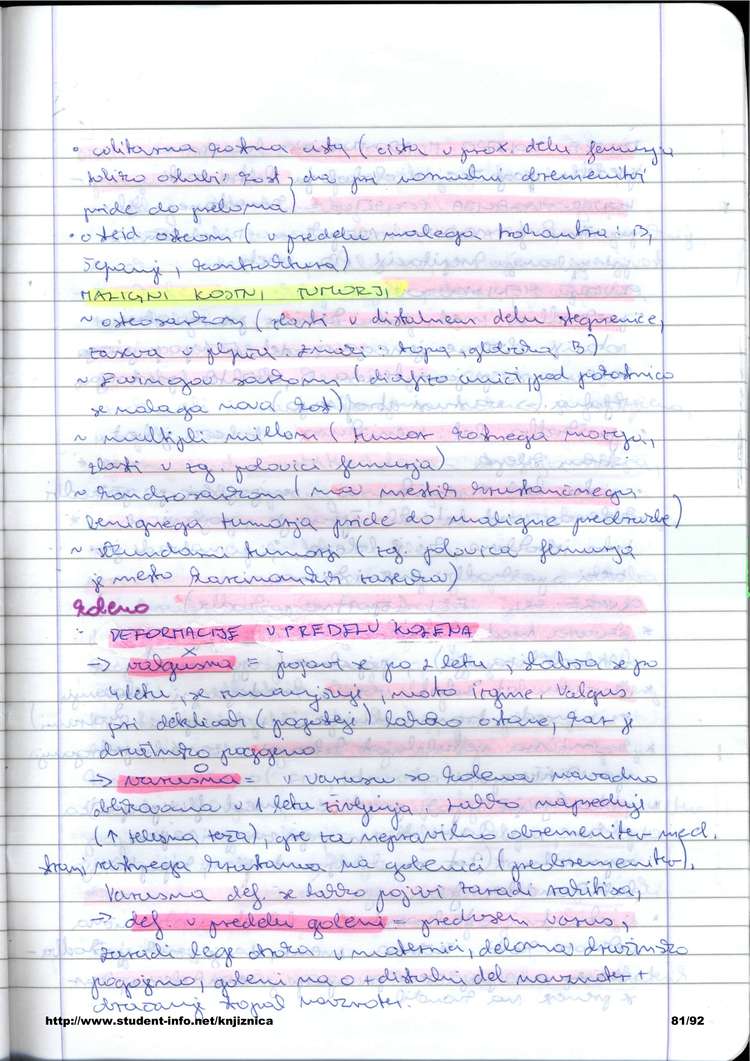 • solitarna kostna cista (cista v prox. delu femurja
toliko oslabi kost, da pri normalni obremenitvi
pride do preloma)
• osteid osteom (v predelu malega trohantra: B,
šepanje, kontraktura)
MALIGNI KOSTNI TUMORJI
~ osteosarkom (zlasti v distalnem delu stegnenice,
zaseva v pljuča. znaki: topa, globoka B)
~ Ewingov sarkom (diafizo uniči, pod pokostnico
se nalaga nova kost)
~ multipli mielom (tumor kostnega mozga,
zlasti v zg. polovici femurja)
~ hondrosarkom (na mestih hrustančnega
benignega tumorja pride do maligne preobrazbe)
~ sekundarni tumorji (zg. polovica femurja
je mesto karcinomskih zasevkov)
koleno
DEFORMACIJE V PREDELU KOLENA
→ valgusna = pojavi se po 2 letu, lahko se po
4 letu se zmanjšuje, nato izgine. Valgus
pri deklicah (pogosteje) lahko ostane, kar je
družinsko pogojeno
→ varusna = v varusu so kolena navadno
oblikovana v 1 letu življenja. Lahko napreduje
(↑ telesna teža), gre za nepravilno obremenitev med.
strani rastnega hrustanca na golenici (preobremenitev).
Varusna def. se lahko pojavi zaradi rahitisa,
→ def. v predelu goleni = predvsem varus;
zaradi lege otroka v maternici, deloma družinsko
pogojeno, goleni na O + distalni del navznoter +
obračanje stopal navznoter.
http://www.student-info.net/knjiznica
81/92